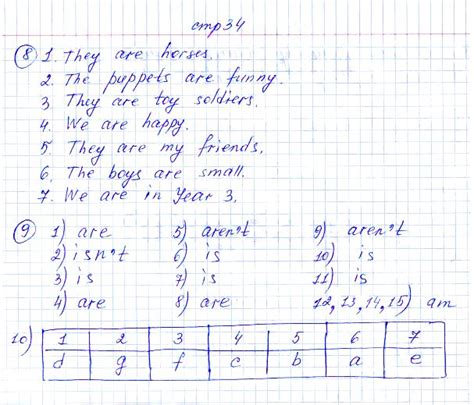 стр 34
8 1. They are horses.
2. The puppets are funny.
3 They are toy soldiers.
4. We are happy.
5. They are my friends.
6. The boys are small.
7. We are in Year 3.
9 1) are 5) aren't 9) aren't
2) isn't 6) is 10) is
3) is 7) is 11) is
4) are 8) are 12, 13, 14, 15) am
10) 1 2 3 4 5 6 7
d g f c b a e